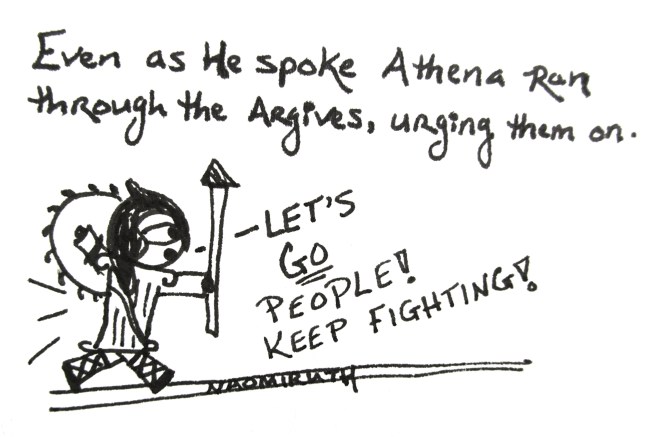 Even as He spoke Athena Ran
through the Argives, urging them on.
- LET'S
GO
PEOPLE!
KEEP FIGHTING!
NAOMIRUTH